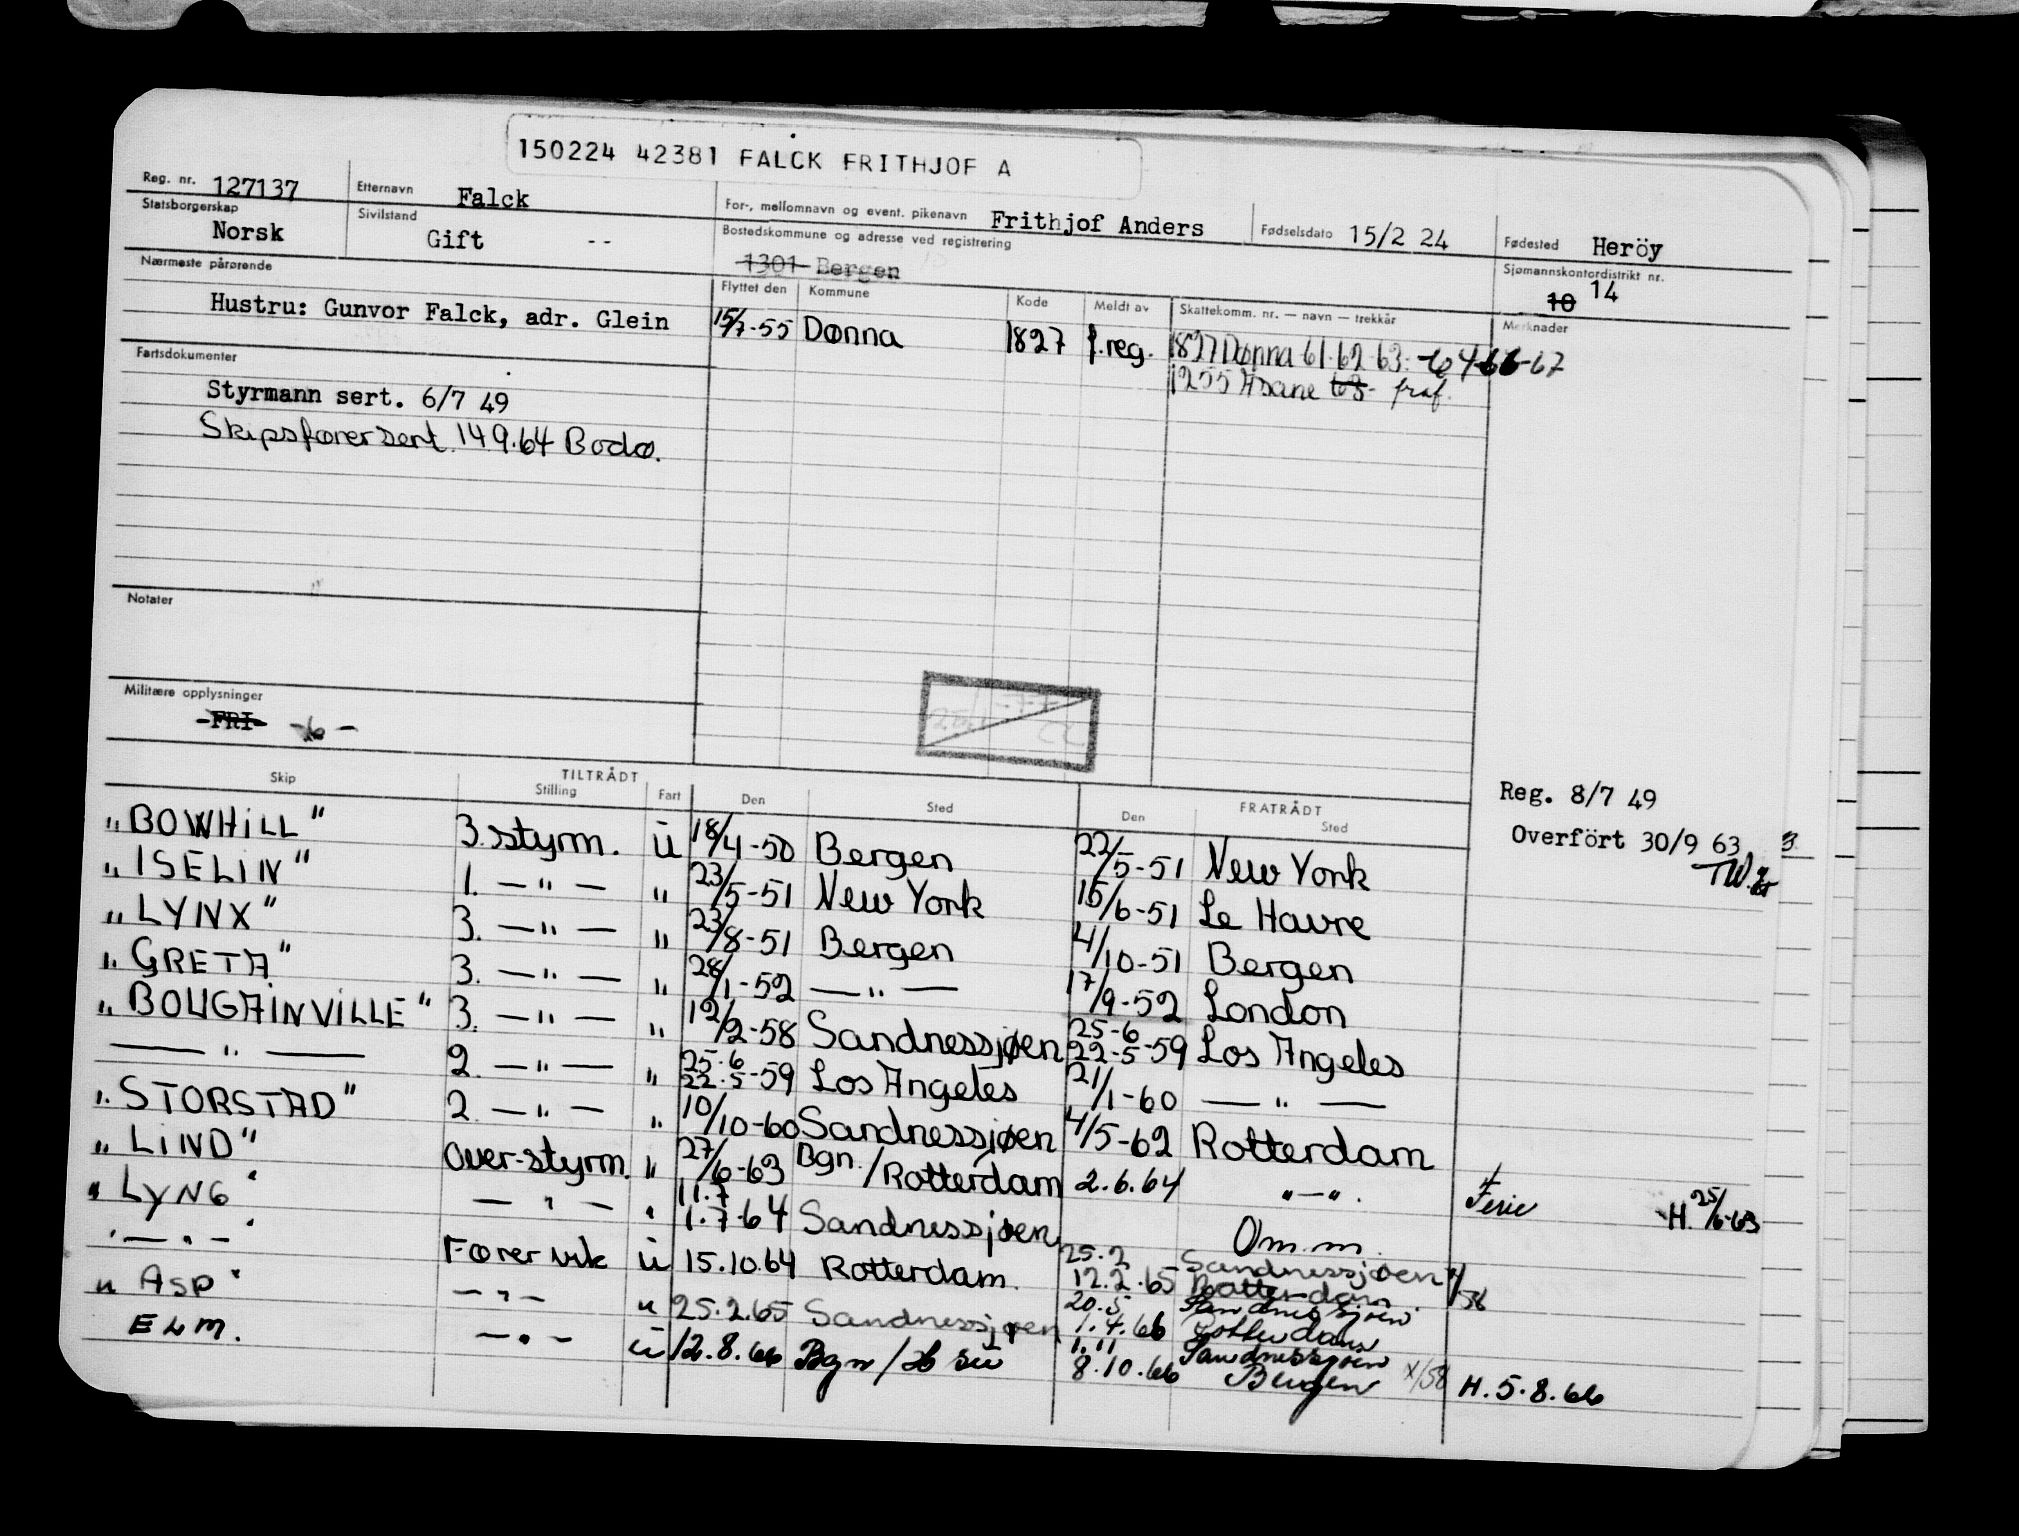 150224 42381 FALCK FRITHJOF A
Reg. nr. 127137 Etternavn Falck For-, mellomnavn og event. pikenavn Frithjof Anders Fødselsdato 15/2 24 Fødested Heröy
Statsborgerskap Norsk Sivilstand Gift -- Bostedskommune og adresse ved registrering 1301 Bergen Sjømannskontordistrikt nr. 10 14
Nærmeste pårørende Flyttet den Kommune Kode Meldt av Skattekomm. nr. — navn — trekkår Merknader
Hustru: Gunvor Falck, adr. Glein 15/7-55 Dønna 1827 f.reg. 1827 Dønna 61-62-63-64-66-67
1255 Åsane 63- fraf.
Fartsdokumenter
Styrmann sert. 6/7 49
Skipsførersert. 14.9.64 Bodø.
Notater
Militære opplysninger
-FRI-
TILTRÅDT FRATRÅDT
Skip Stilling Fart Den Sted Den Sted
Reg. 8/7 49
Overfört 30/9 63
"BOWHILL" 3. styrm. ü 18/4-50 Bergen 22/5-51 New York
"ISELIN" 1. — " — " 23/5-51 New York 15/6-51 Le Havre
"LYNX" 3. — " — " 23/8-51 Bergen 4/10-51 Bergen
"GRETA" 3. — " — " 28/1-52 — " — 17/9-52 London
"BOUGAINVILLE" 3. — " — " 12/2-58 Sandnessjøen 25-6 22-5-59 Los Angeles
— " — 2. — " — " 25.6 22.5-59 Los Angeles 21/1-60 — " —
"STORSTAD" 2. — " — " 10/10-60 Sandnessjøen 4/5-62 Rotterdam
"LIND" Over-styrm. " 27/6-63 Bgn./Rotterdam 2.6.64 " — ". Ferie H. 25/6-63
"LYNG" — " — " 11.7 1.7.64 Sandnessjøen Om.m.
" — " — " Fører vik ü 15.10.64 Rotterdam. 25.2 12.2.65 Sandnessjøen Rotterdam
"ASP" — " — " 25.2.65 Sandnessjøen 20.5 1.4.66 Sandnessjøen Rotterdam
ELM. — " — ü 12.8.66 Bgn / 1.11 8.10.66 Sandnessjøen Bergen x/58 H. 5.8.66